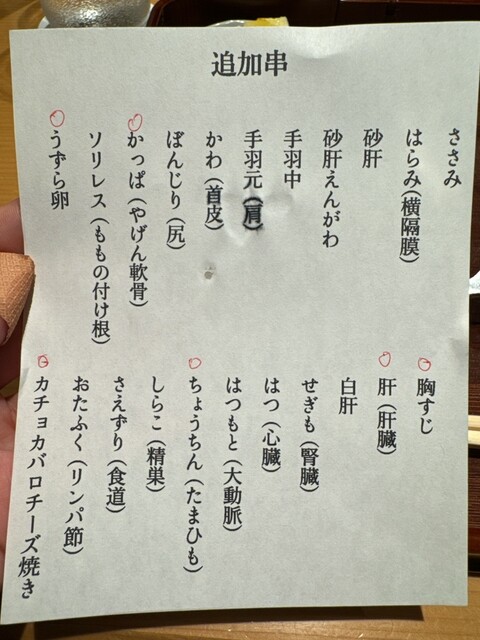 追加串
ささみ
はらみ(横隔膜)
砂肝
砂肝えんがわ
手羽中
手羽元(肩)
かわ(首皮)
ぼんじり(尻)
かっぱ(やげん軟骨)
ソリレス(ももの付け根)
うずら卵
胸すじ
肝(肝臓)
白肝
せぎも(腎臓)
はつ(心臓)
はつもと(大動脈)
ちょうちん(たまひも)
しらこ(精巣)
さえずり(食道)
おたふく(リンパ節)
カチョカバロチーズ焼き